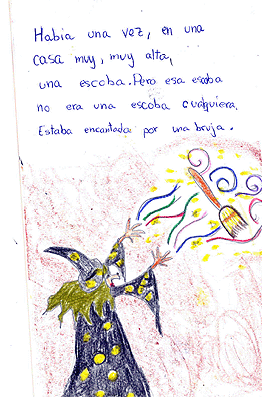 Habia una vez, en una
casa muy, muy alta,
una escoba. Pero esa escoba
no era una escoba cualquiera.
Estaba encantada por una bruja.